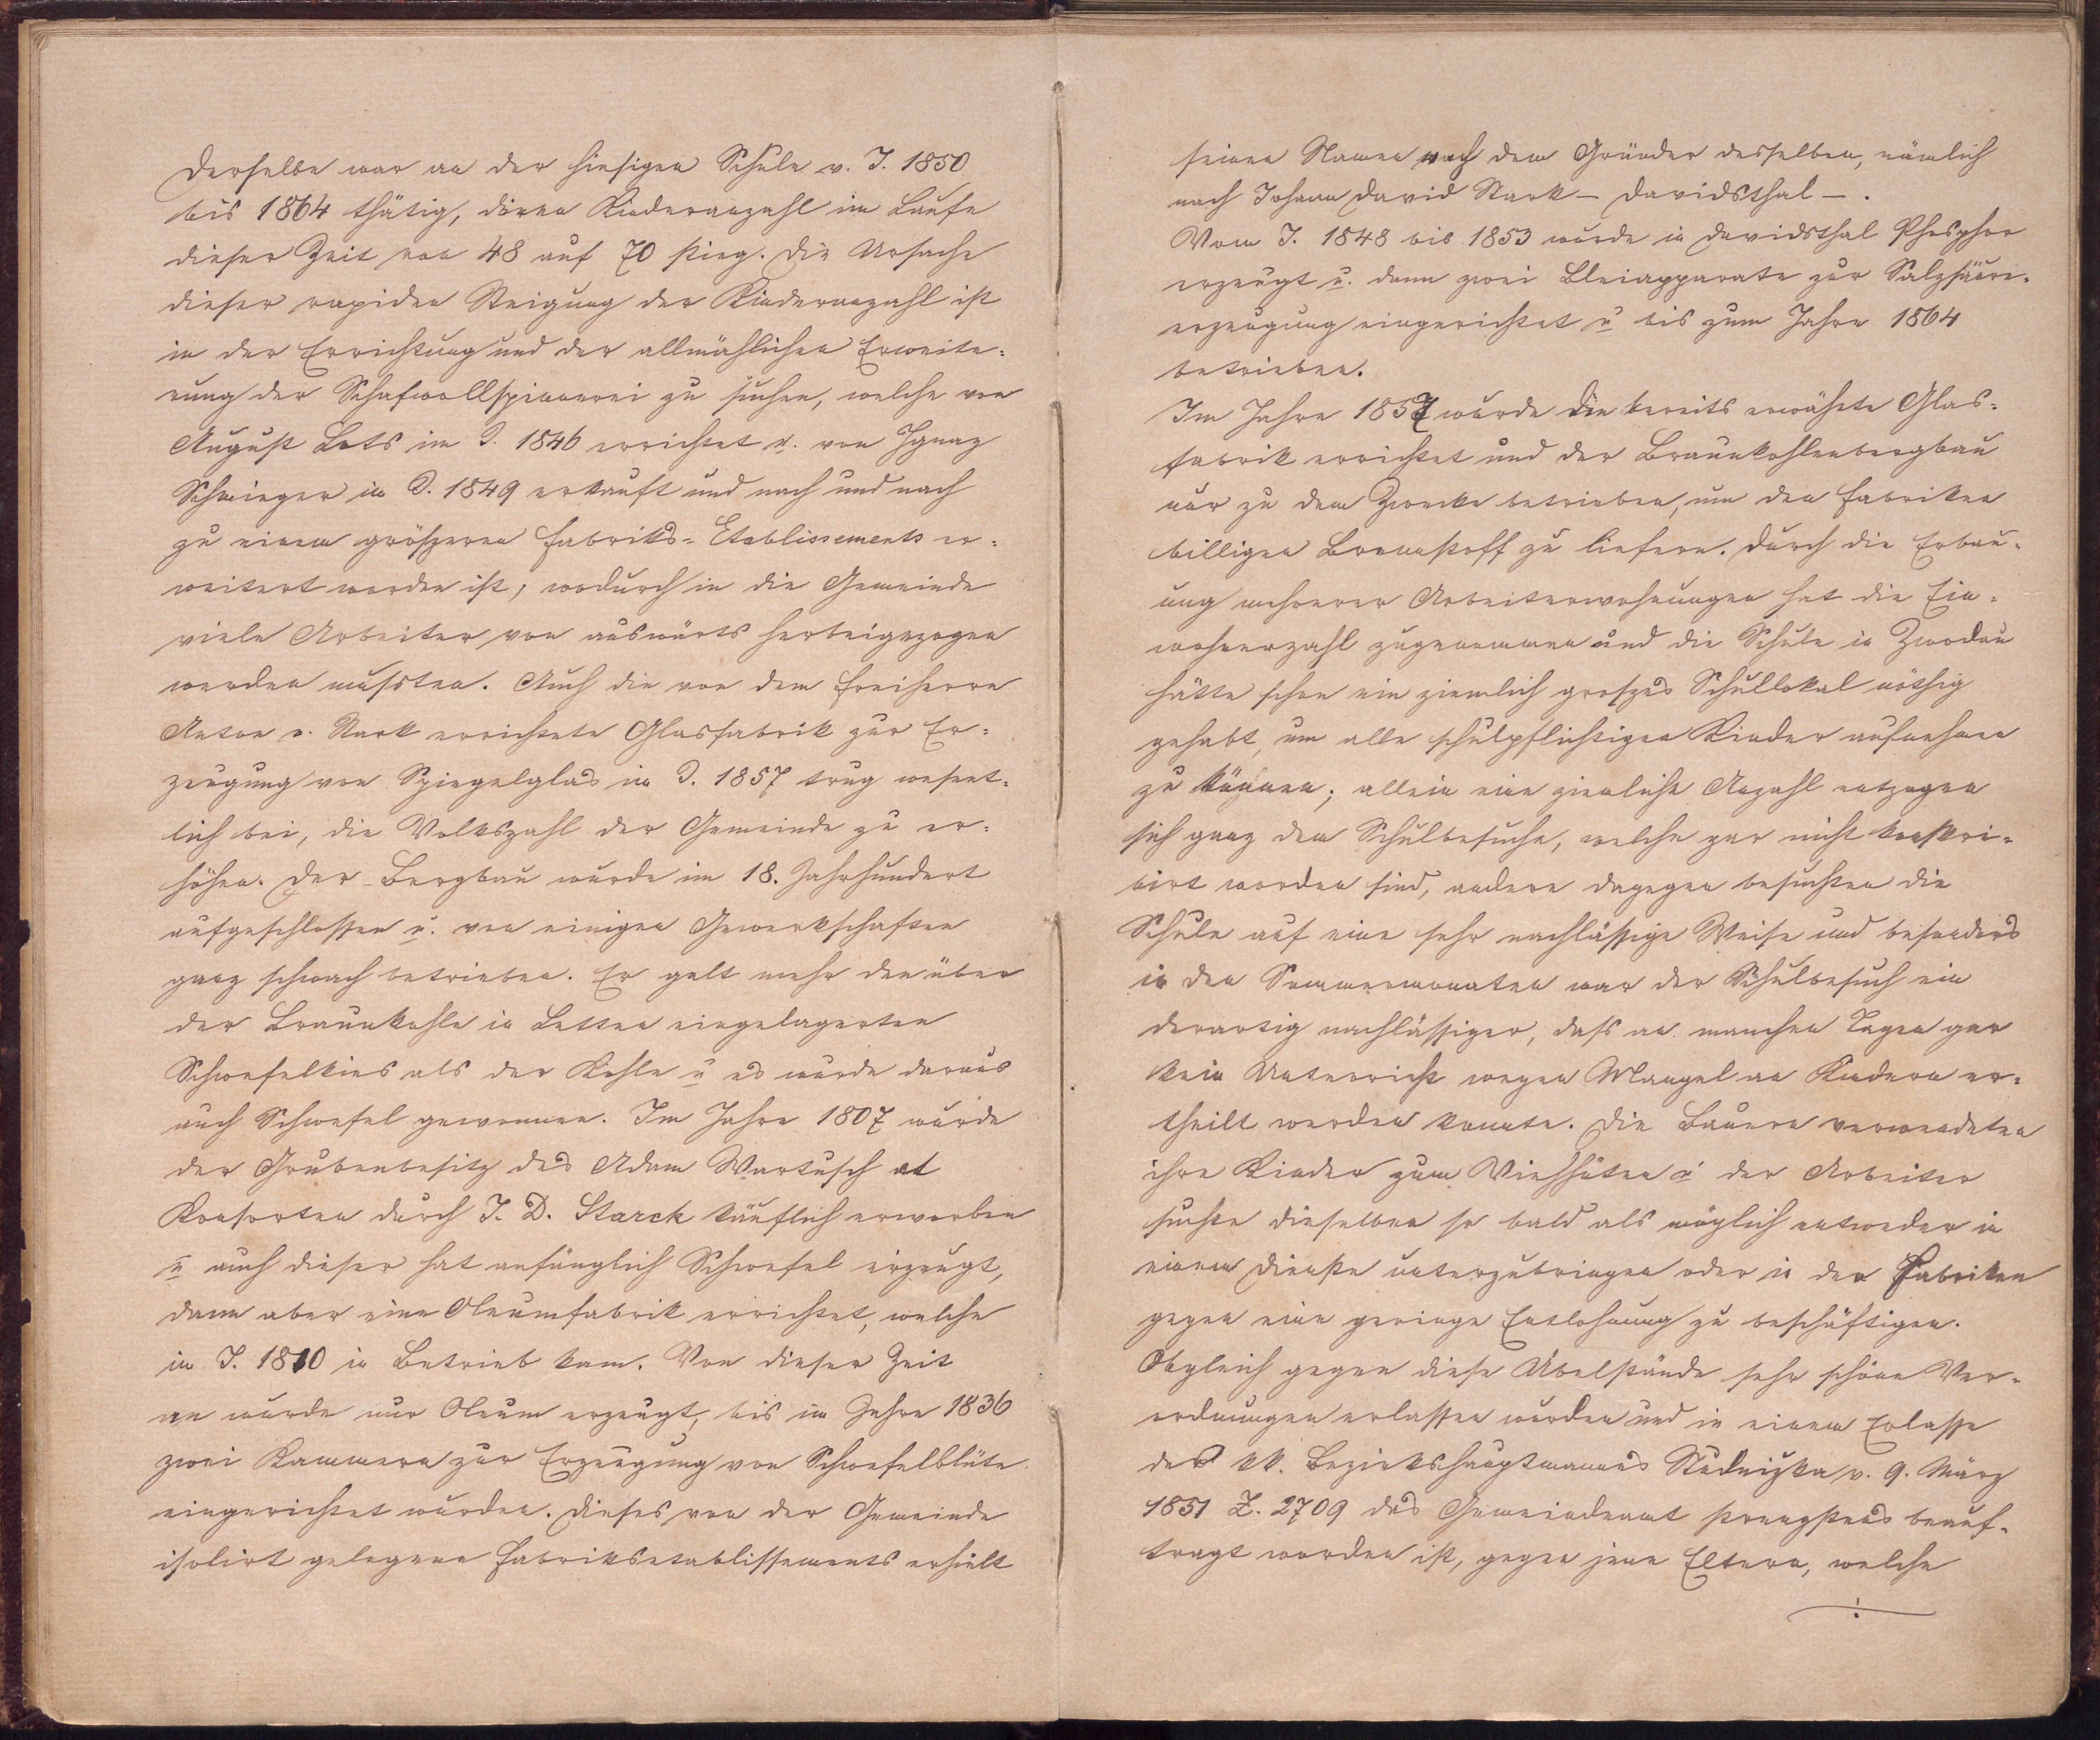 Derselbe war an der hiesigen Schule v. J. 1850
bis 1864 thätig, deren Kinderanzahl im Laufe
dieser Zeit von 48 auf 70 stieg. Die Ursache
dieser rapiden Steigung der Kinderanzahl ist
in der Errichtung und der allmählichen Erweite-
rung der Schafwollspinnerei zu suchen, welche von
August Lots im J. 1846 errichtet u. von Ignaz
Schmieger im J. 1849 erkauft und nach und nach
zu einem größeren Fabriks-Etablissements er-
weitert worden ist, wodurch in die Gemeinde
viele Arbeiter von auswärts herbeigezogen
werden mußten. Auch die von dem Freiherrn
Anton v. Stark errichtete Glasfabrik zur Er-
zeugung von Spiegelglas im J. 1857 trug wesent-
lich bei, die Volkszahl der Gemeinde zu er-
höhen. Der Bergbau wurde im 18. Jahrhundert
aufgeschlossen u. von einigen Gewerkschaften
ganz schwach betrieben. Er galt mehr den über
der Braunkohle in Letten eingelagerten
Schwefelkies als der Kohle u es wurde daraus
auch Schwefel gewonnen. Im Jahre 1807 wurde
der Grubenbesitz des Adam Wartusch et
Konsorten durch J. D. Starck käuflich erworben
u auch dieser hat anfänglich Schwefel erzeugt,
dann aber eine Oleumfabrik errichtet, welche
im J. 1810 in Betrieb kam. Von dieser Zeit
an wurde nur Oleum erzeugt, bis im Jahre 1836
zwei Kammern zur Erzeugung von Schwefelblüte
eingerichtet wurden. Dieses von der Gemeinde
isolirt gelegene Fabriksetablissements erhielt
seinen Namen nach dem Gründer desselben, nämlich
nach Johann David Stark – Davidsthal –.
Vom J. 1848 bis 1853 wurde in Davidsthal Phosphor
erzeugt u. dann zwei Bleiapparate zur Salzsäure-
erzeugung eingerichtet u bis zum Jahre 1864
betrieben.
Im Jahre 1857 wurde die bereits erwähnte Glas-
fabrik errichtet und der Braunkohlenbergbau
nur zu dem Zwecke betrieben, um den Fabriken
billigen Brennstoff zu liefern. Durch die Erbau-
ung mehrerer Arbeiterwohnungen hat die Ein-
wohnerzahl zugenommen und die Schule in Zwodau
hätte schon ein ziemlich großes Schullokal nöthig
gehabt, um alle schulpflichtigen Kinder aufnehmen
zu können; allein eine ziemliche Anzahl entzogen
sich ganz dem Schulbesuche, welche gar nicht konskri-
birt worden sind, andere dagegen besuchten die
Schule auf eine sehr nachlässige Weise und besonders
in den Sommermonaten war der Schulbesuch ein
derartig nachlässiger, daß an manchen Tagen gar
kein Unterricht wegen Mangel an Kindern er-
theilt werden konnte. Die Bauern verwendeten
ihre Kinder zum Viehhüten u der Arbeiter
suchte dieselben so bald als möglich entweder in
einem Dienste unterzubringen oder in den Fabriken
gegen eine geringe Entlohnung zu beschäftigen.
Obgleich gegen diese Übelstände sehr schöne Ver-
ordnungen erlassen wurden und in einem Erlasse
des kk. Bezirkshauptmannes Studnizka v. 9. März
1851 Z. 2709 das Gemeindeamt strengstens beauf-
tragt worden ist, gegen jene Eltern, welche